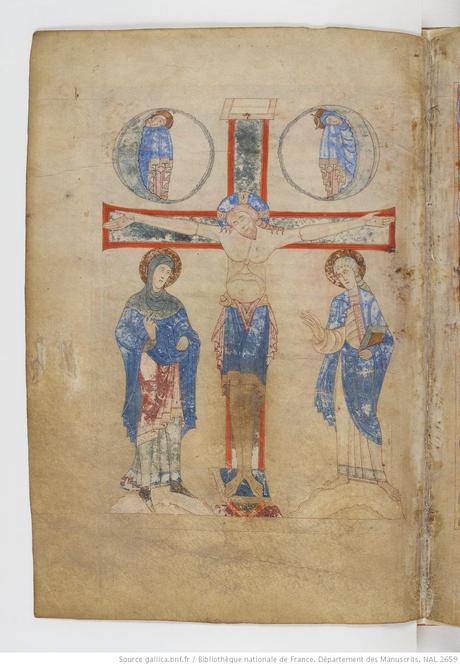 Source gallica.bnf.fr / Bibliothèque nationale de France. Département des Manuscrits, NAL 2659